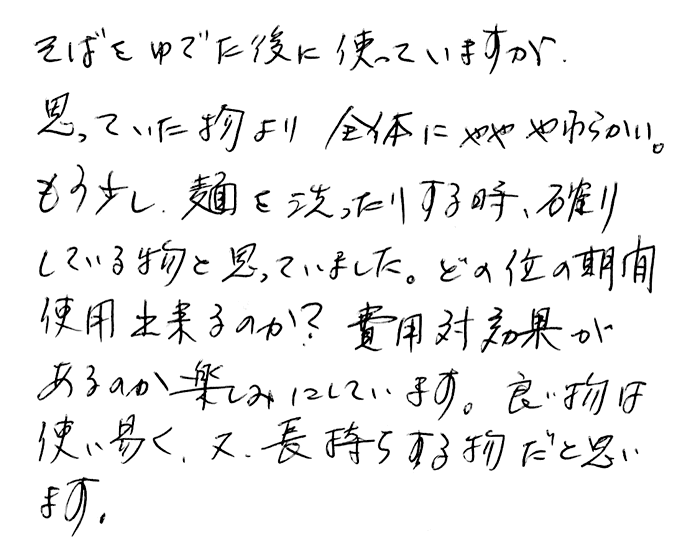 そばをゆでた後に使っていますが、
思っていた物より全体にややややわらかい。
もう少し、麺を洗ったりする時、確り
している物と思っていました。どの位の期間
使用出来るのか？費用対効果が
あるのか楽しみにしています。良い物は
使い易く、又、長持ちする物だと思い
ます。